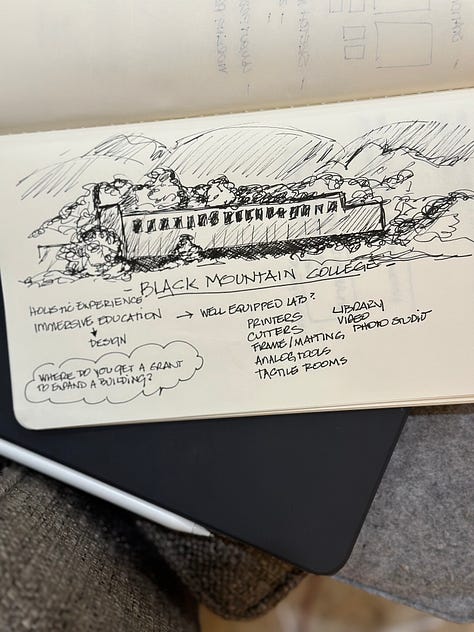 - BLACK MOUNTAIN COLLEGE -
HOLISTIC EXPERIENCE
IMMERSIVE EDUCATION
DESIGN
WHERE DO YOU GET A GRANT
TO EXPAND A BUILDING?
→ WELL EQUIPPED LAB?
PRINTERS
CUTTERS
FRAME/MATTING
ANALOG TOOLS
TACTILE ROOMS
LIBRARY
VIDEO
PHOTO STUDIO